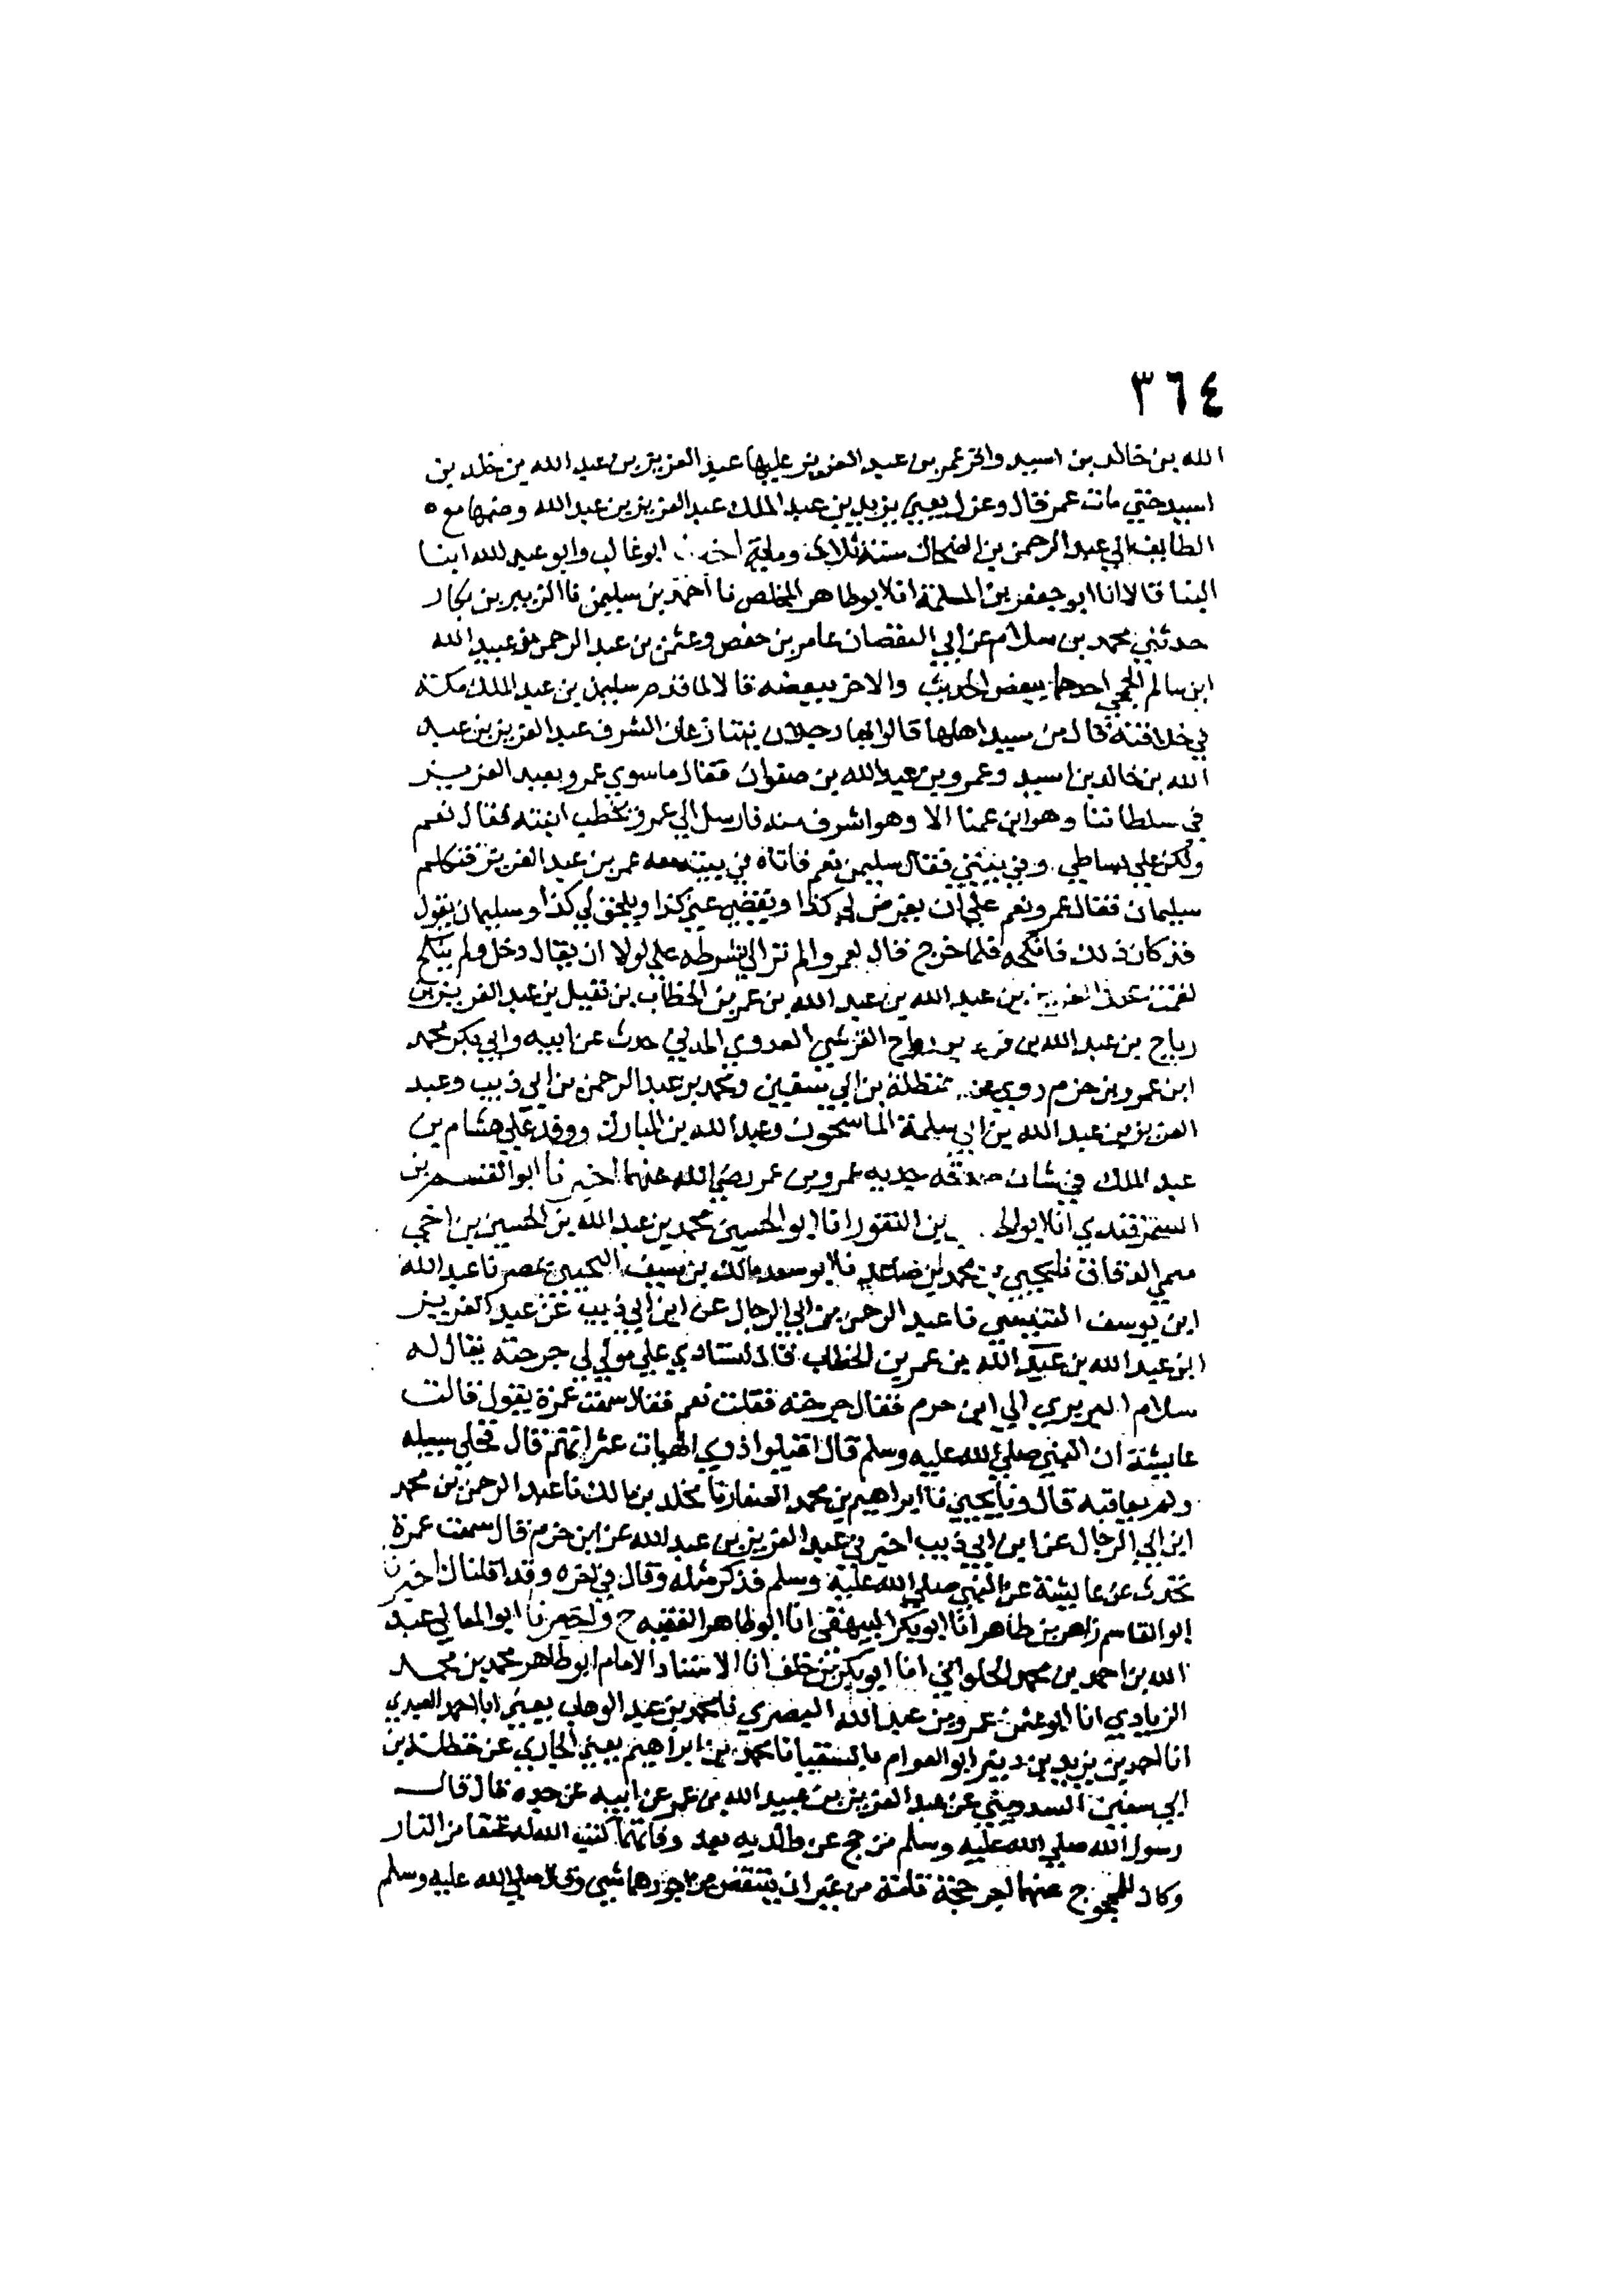 ٣٦٤
الله بن خالد بن اسيد واقر عمر بن عبد العزيز عليها عبد العزيز بن عبد الله بن خلد بن
اسيد حتي مات عمر قال وعزل يعني يزيد بن عبد الملك عبد العزيز بن عبد الله وضمها مع ه
الطايف الي عبد الرحمن بن الضحاك سنة ثلاث وماية ابو غالب وابو عبد الله ابنا
البنا قالا انا ابو جعفر بن المسلمة انا ابو طاهر المخلص نا احمد بن سليمن نا الزبير بن بكار
حدثني محمد بن سلام عن ابي اليقضان عامر بن حفص وعثمن بن عبد الرحمن بن عبيد الله
ابن سالم الجمحي احدهما ببعض الحديث والاخر ببعضه قالا لما قدم سليمن بن عبد الملك مكة
في خلافته قال من سيد اهلها قالوا بها رجلان يتنازعان الشرف عبد العزيز بن عبد
الله بن خالد بن اسيد وعمرو بن عبد الله بن صفوان فقال ما سوي عمرو بعبد العزيز
في سلطاننا وهو ابن عمنا الا وهو اشرف منه فارسل الي عمرو يخطب ابنته فقال نعم
ولكن علي بساطي وفي بيتي فقال سليمن نعم فاتاه في بيته معه عمر بن عبد العزيز فتكلم
سليمان فقال عمرو نعم علي ان يفرض لي كذا ويقضي عني كذا ويلحق لي كذا وسليمان يقول
قد كان ذلك فانكحه فلما خرج قال لعمر والم تر الي شرطه علي لولا ان يقال دخل ولم ينكح
لقمت عبد العزيز بن عبد الله بن عبد الله بن عمر بن الخطاب بن نفيل بن عبد العزيز بن
رياح بن عبد الله بن رزاح القرشي العدوي المدني حدث عن ابيه وابي بكر محمد
ابن عمرو بن حزم روي عنه حنظلة بن ابي سفين ومحمد بن عبد الرحمن بن ابي ذييب وعبد
العزيز بن عبد الله بن ابي سلمة الماسجون وعبد الله بن المبارك ووفد علي هشام بن
عبد الملك في شان صدقة جديه عمر وبن عمر رضي الله عنهما اخبرنا ابو القسم بن
السمرقندي انا ابو بن النقور انا ابو الحسين محمد بن عبد الله بن الحسين بن اخي
ميمي الدقاق نا يحيي بن محمد بن صاعد نا ابو سعد مالك بن سيف التجيبي بمصر نا عبد الله
ابن يوسف التنيسي نا عبد الرحمن بن ابي الرجال عن ابن ابي ذييب عن عبد العزيز
ابن عبد الله بن عبد الله بن عمر بن الخطاب قال استادي علي مولي لي جرحته يقال له
سلام البربري الي ابن حزم فقال جرحته فقلت نعم فقال سمعت عمرة يقول قالت
عايشة ان النبي صلي الله عليه وسلم قال اقيلوا ذوي الهيات عثراتهم قال فخلي سبيله
ولم يعاقبه قال ونا يحيي نا ابراهيم بن محمد الصفار نا مخلد بن مالك نا عبد الرحمن بن محمد
ابن ابي الرجال عن ابن ابي ذييب اخبرني عبد العزيز بن عبد الله عن ابن حزم قال سمعت عمرة
تحدث عن عايشة عن النبي صلي الله عليه وسلم فذكر مثله وقال في اخره وقد اقلناك اخبرنا
ابو القاسم زاهر بن طاهر انا ابو بكر البيهقي انا ابو طاهر الفقيه ح واخبرنا ابو المعالي عبد
الله بن احمد بن محمد الحلواني انا ابو بكر بن خلف انا الاستاد الامام ابو طاهر محمد بن محمد
الزيادي انا ابو عثمن عمرو بن عبد الله البصري نا محمد بن عبد الوهاب يعني ابا احمد العبدي
انا احمد بن يزيد بن دينر ابو العوام نا محمد بن ابراهيم يعني الحارثي عن حنظلة بن
ابي سفين السدوسي عن عبد العزيز بن عبيد الله بن عمر عن ابيه عن جده قال قال
رسول الله صلي الله عليه وسلم من حج عن والديه بعد وفاتهما كتب الله له عتقا من النار
وكان للمحجوج عنهما اجر حجة تامة من غير ان ينتقص من اجورهما شي وقال صلي الله عليه وسلم